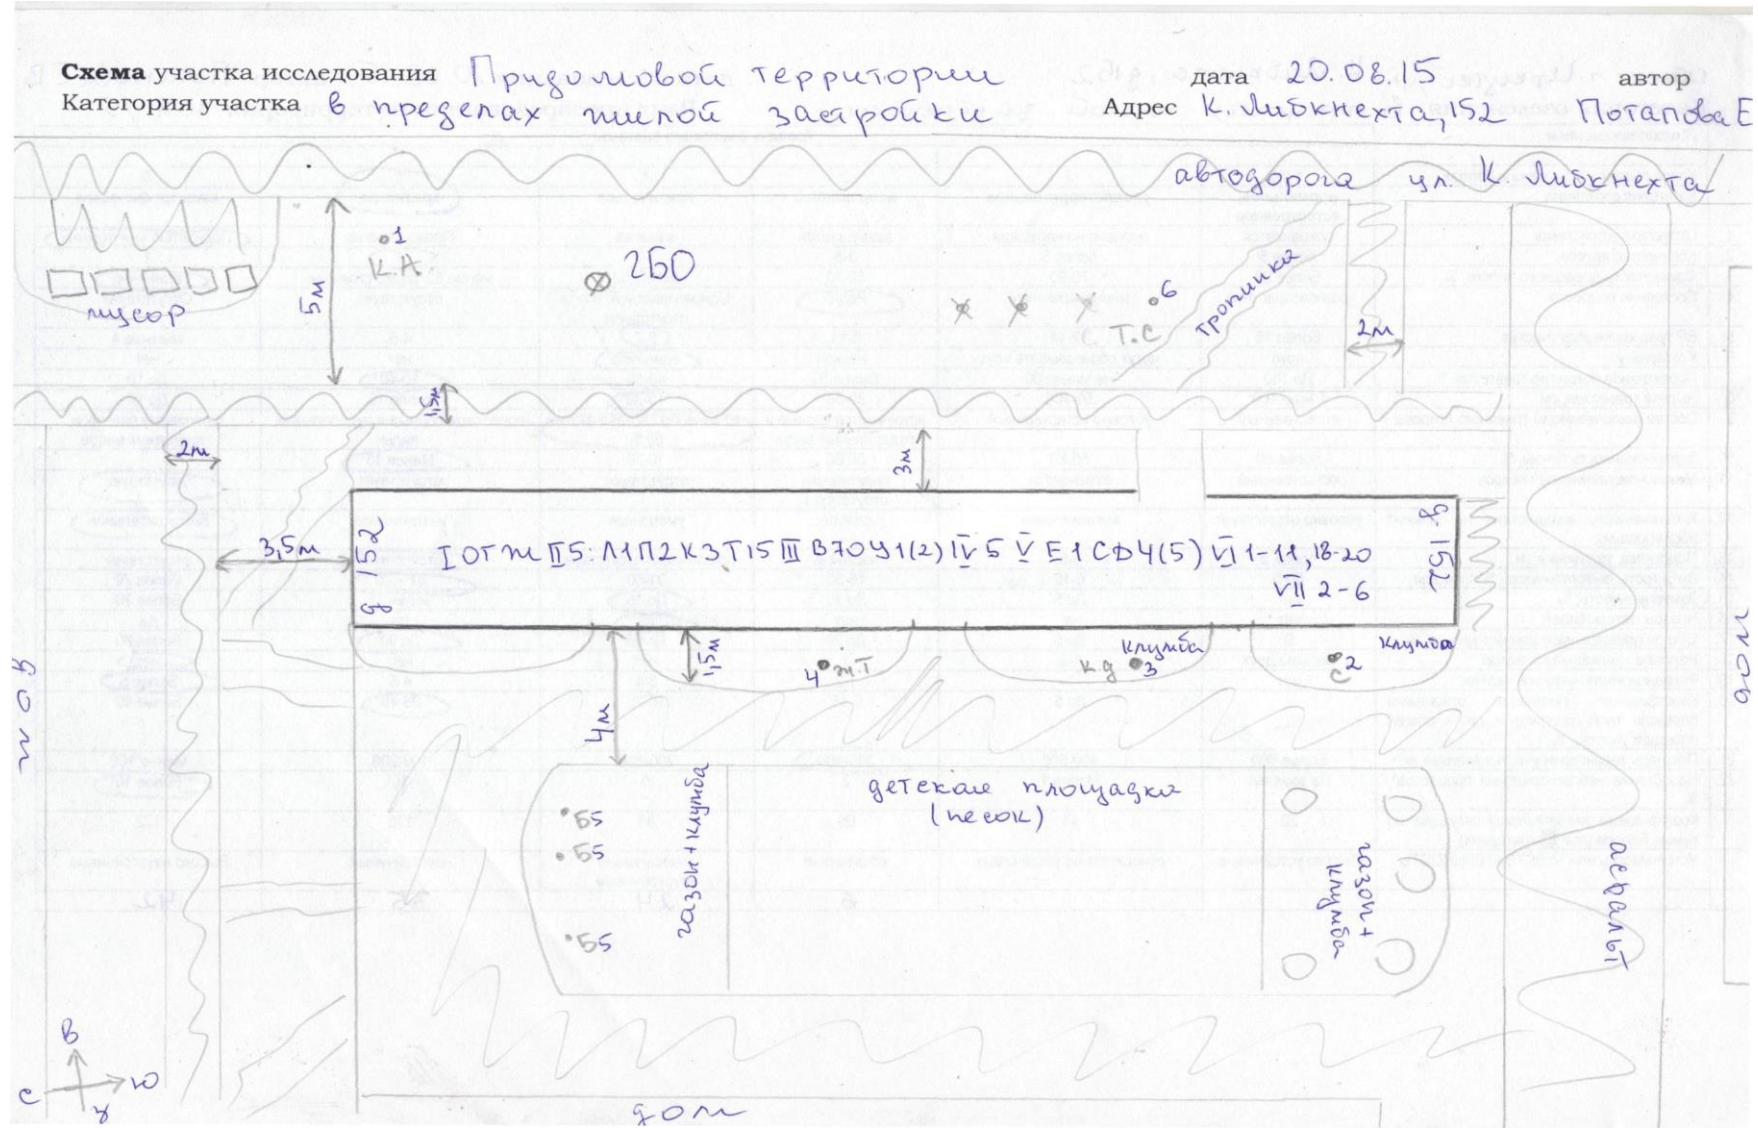 Схема участка исследования Придомовой территории дата 20.08.15 автор
Категория участка в пределах жилой застройки Адрес К. Либкнехта, 152 Потапова Е
автодорога ул. К. Либкнехта
1
К.А.
2БО
5м
мусор
6
Т.С
тропинка
2м
1,5м
2м
3м
3,5м
д 152
I ОГЖ II 5: Л1П2К3Т15 III В70У1(2) IV 5 V Е1СД4(5) VI 1-11, 18-20
VII 2-6
д. 152
дом
1,5м
4 ж.Т
клумба
кд 3
клумба
2
С
4м
дом
газон + клумба
детская площадка
(песок)
Б5
Б5
Б5
газон +
клумба
асфальт
В
С Ю
З
дом